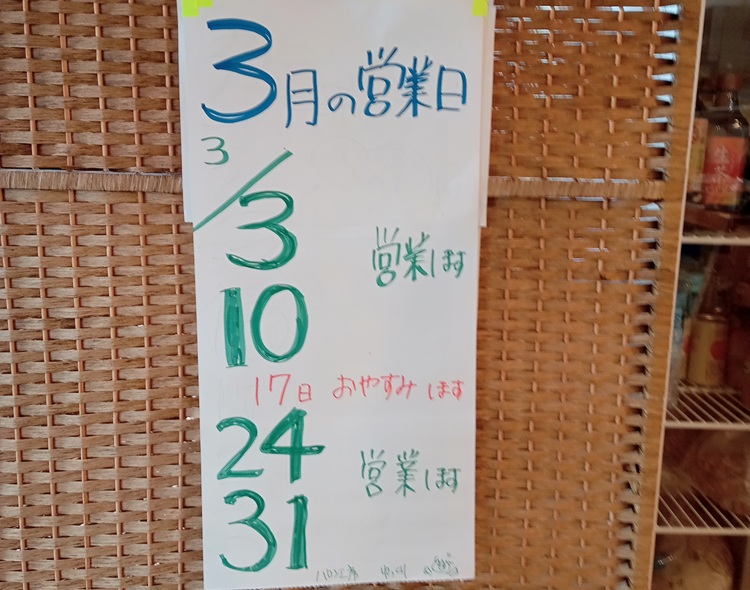 3月の営業日
3/3
営業します
10
17日 おやすみします
24
営業します
31